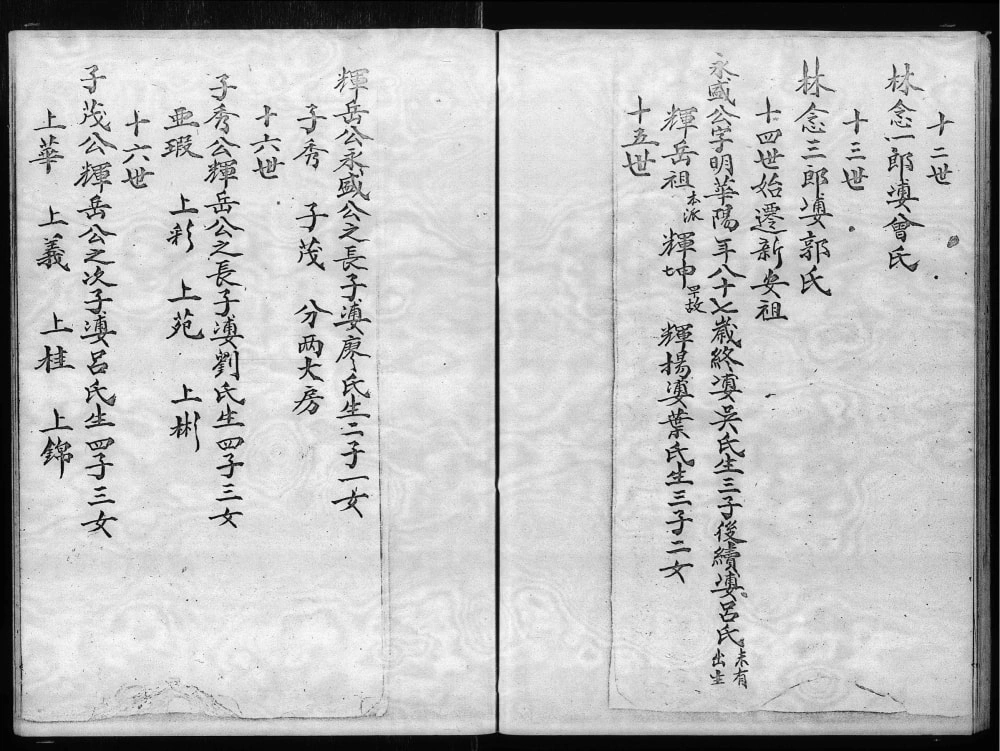 十二世
林念一郎婆曾氏
十三世
林念三郎婆郭氏
十四世始遷新安祖
永盛公字明華陽年八十七歲終婆吳氏生三子後續婆呂氏未有出生
輝岳祖本派 輝坤早故 輝揚婆葉氏生三子二女
十五世
輝岳公永盛公之長子婆廖氏生二子一女
子秀 子茂 分兩大房
十六世
子秀公輝岳公之長子婆劉氏生四子三女
亜瑕 上彩 上苑 上彬
十六世
子茂公輝岳公之次子婆呂氏生四子三女
上華 上義 上桂 上錦